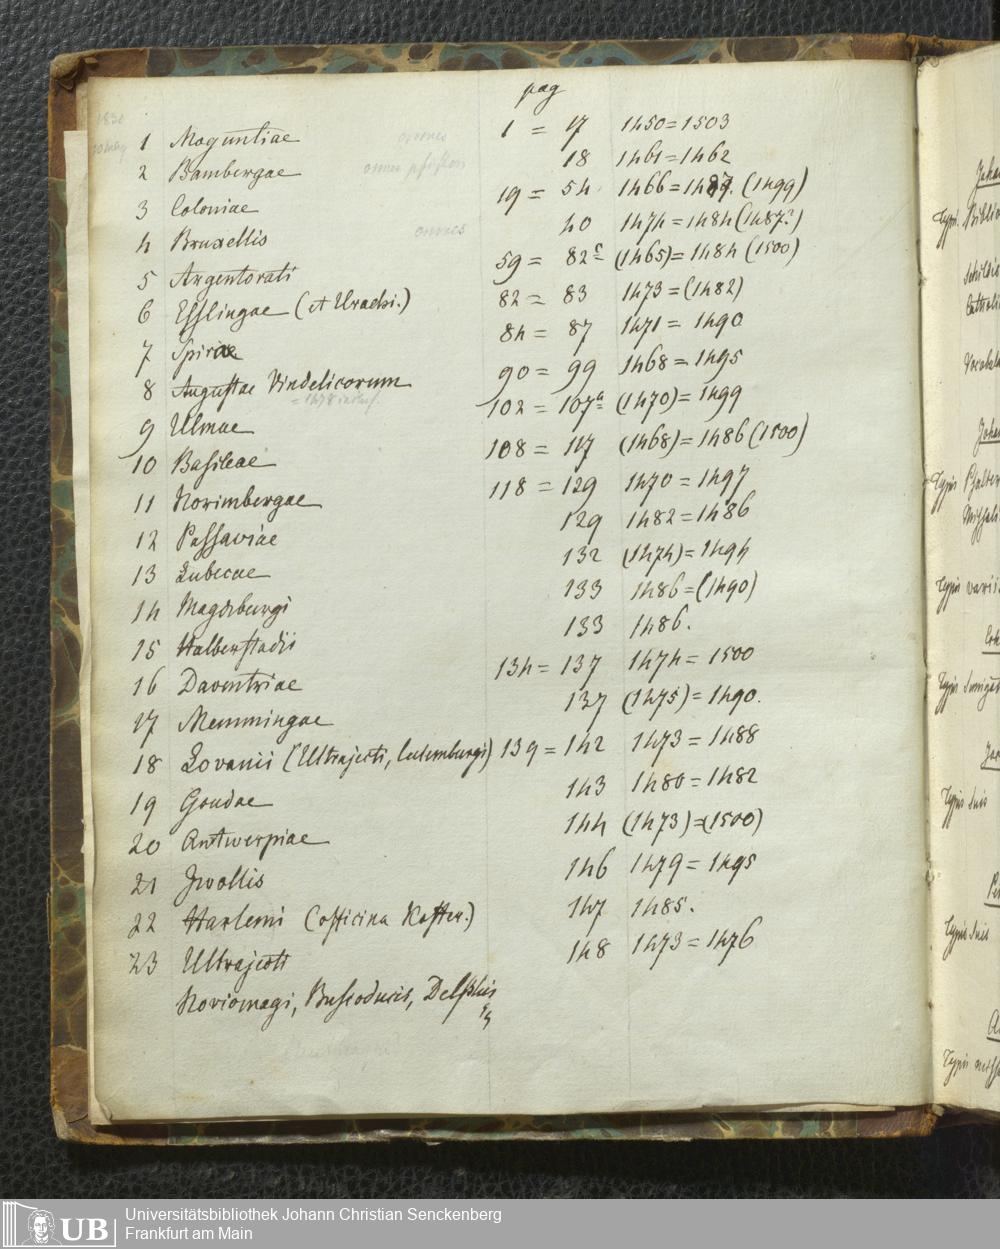 pag
1 Moguntiae 1 = 17 1450=1503
2 Bambergae omnes 18 1461=1462
3 Coloniae 19 = 54 1466=1489. (1499)
4 Bruxellis omnes 40 1474=1484 (1487?)
5 Argentorati 59 = 82c (1465)=1484 (1500)
6 Esslingae (et Urachi.) 82 = 83 1473=(1482)
7 Spirae 84 = 87 1471 = 1490
8 Augustae Vindelicorum 90 = 99 1468=1495
9 Ulmae 102 = 107a (1470)=1499
10 Basileae 108 = 117 (1468)=1486 (1500)
11 Norimbergae 118 = 129 1470=1497
12 Passaviae 129 1482=1486
13 Lubecae 132 (1474)=1494
14 Magdeburgi 133 1486=(1490)
15 Halberstadii 133 1486.
16 Daventriae 134 = 137 1474= 1500
17 Memmingae 137 (1475)=1490.
18 Lovanii (Ultrajecti, Culemburgi) 139 = 142 1473=1488
19 Goudae 143 1480=1482
20 Antwerpiae 144 (1473)=(1500)
21 Zwollis 146 1479=1495
22 Harlemi (officina Koster.) 147 1485.
23 Ultrajecti 148 1473=1476
Noviomagi, Buscoducis, Delphis
Typi
Typis
Typis variis
Typis
Typis suis
Typis suis
Typis
Universitätsbibliothek Johann Christian Senckenberg
Frankfurt am Main
UB